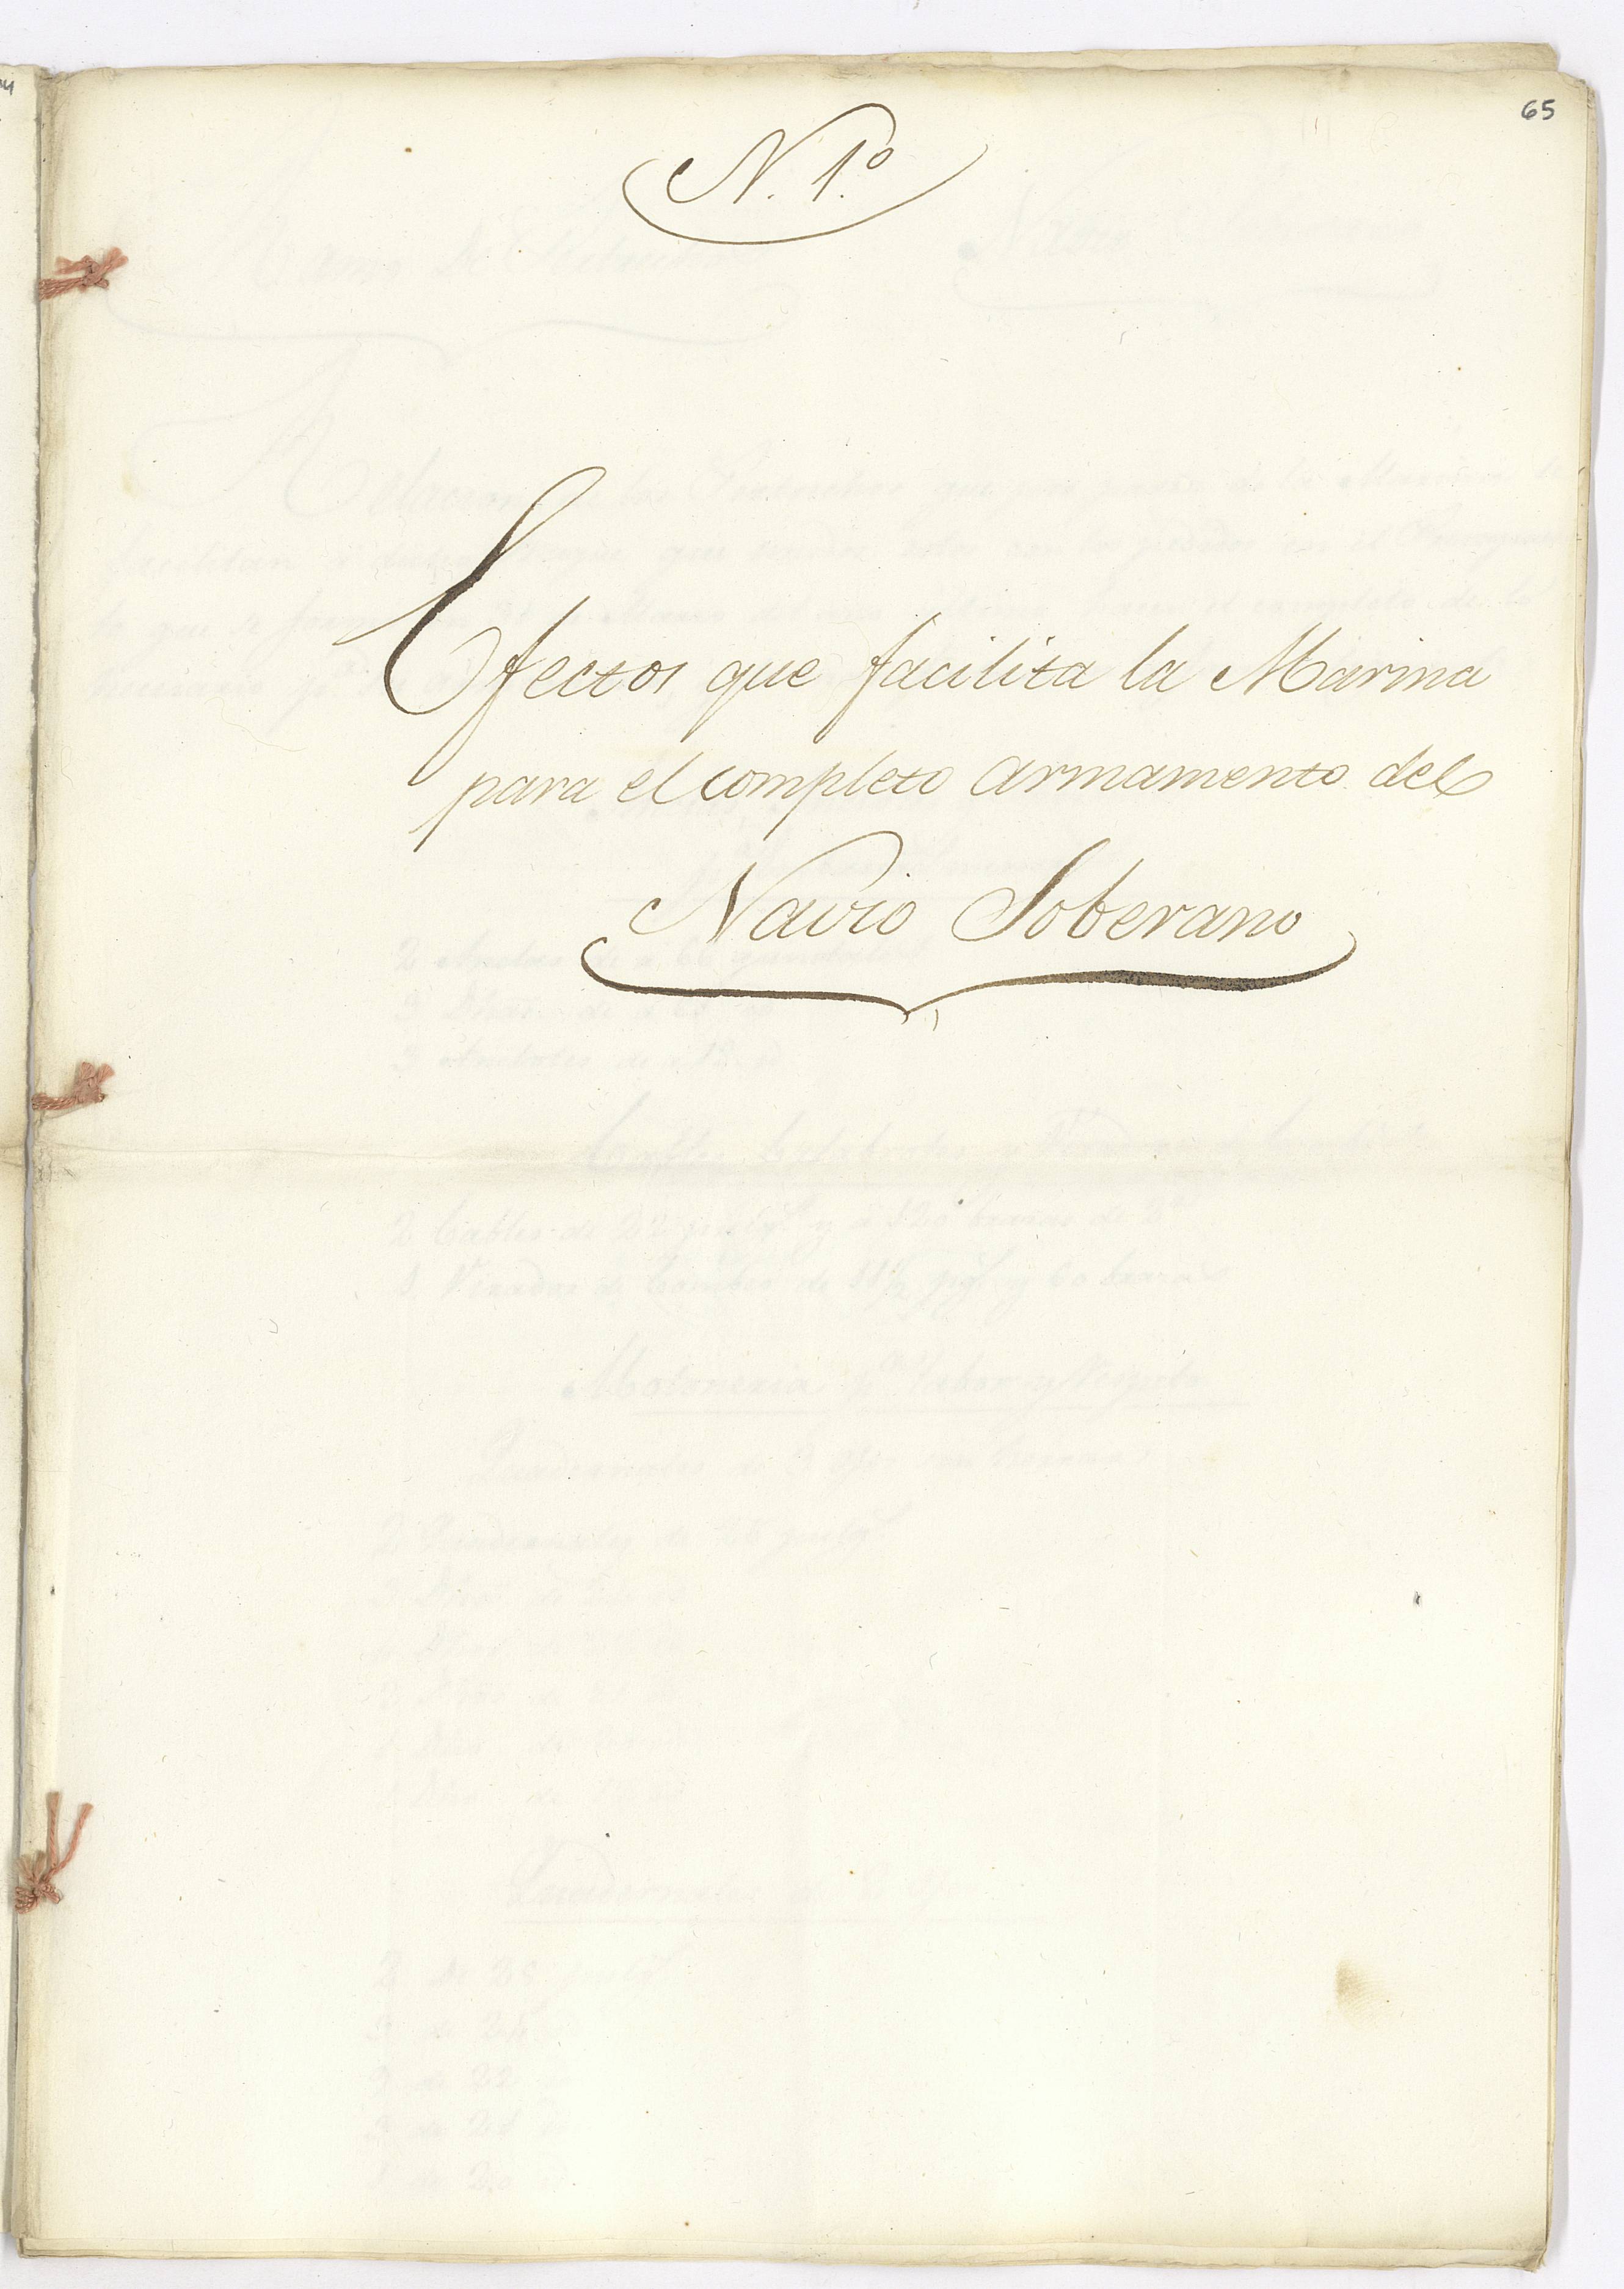 65
N. 1.º
Efectos que facilita la Marina
para el completo armamento del
Navio Soberano